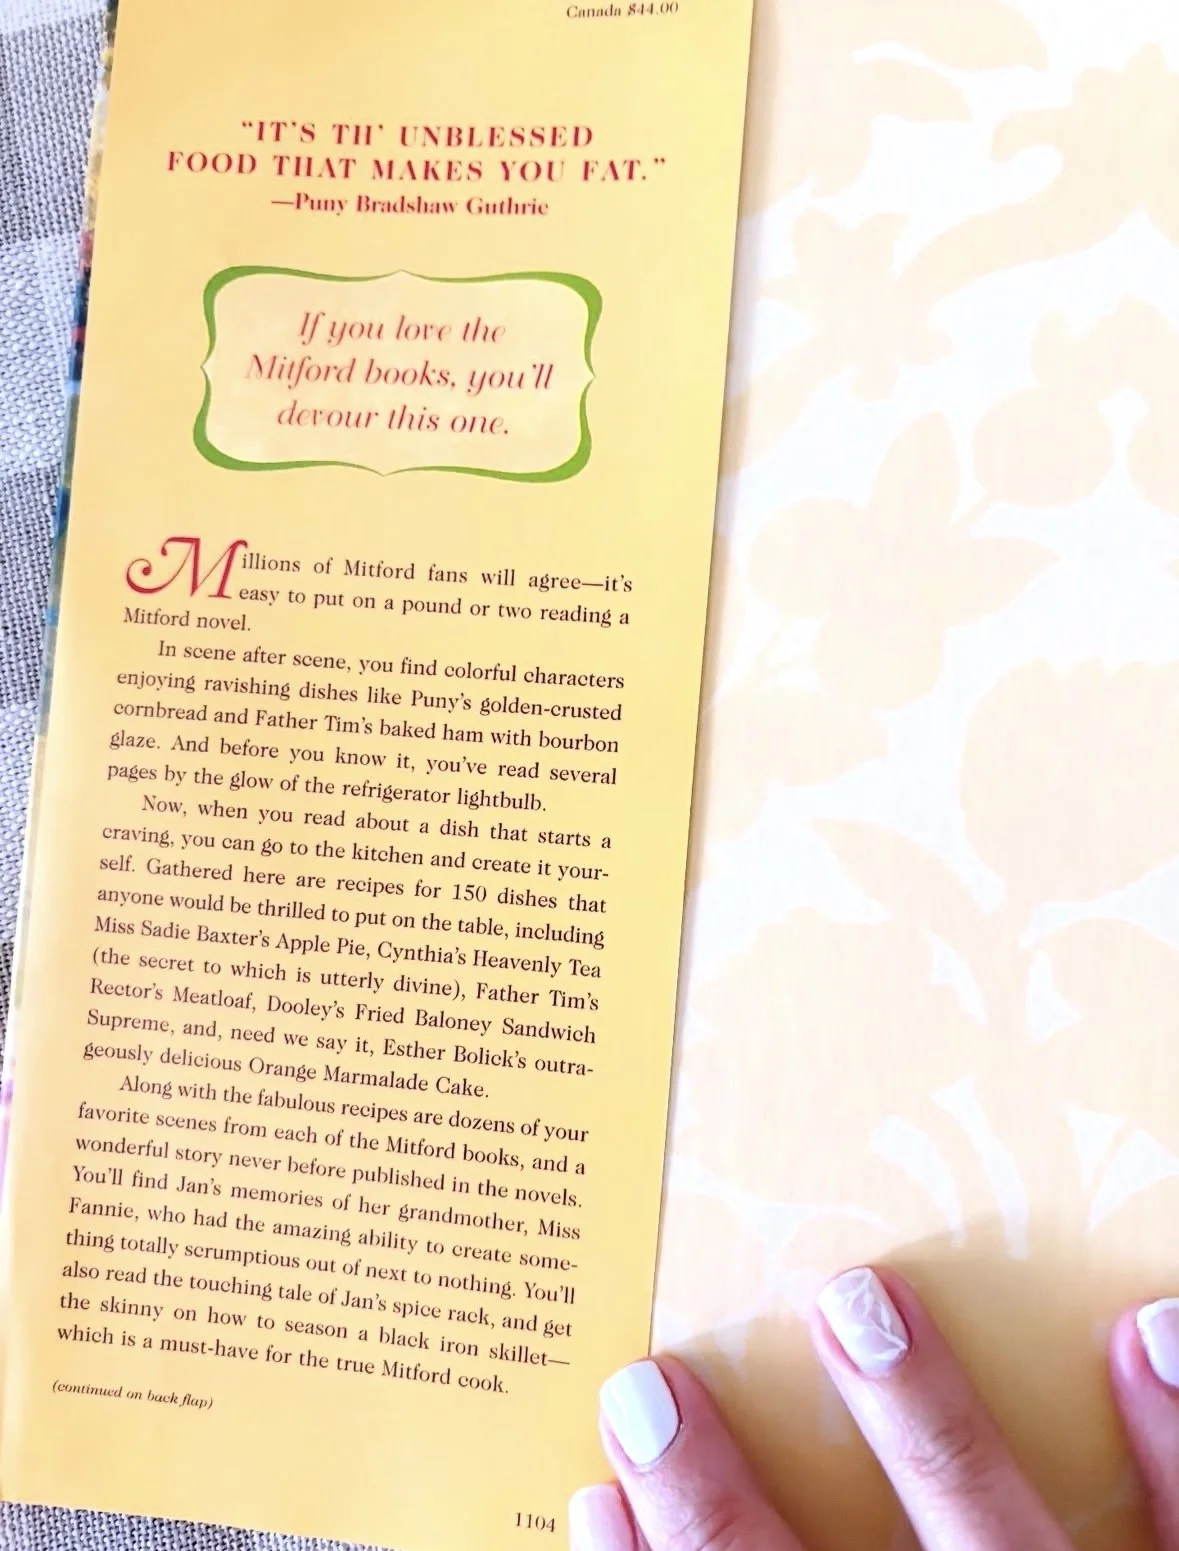 Canada $44.00
"IT'S TH' UNBLESSED
FOOD THAT MAKES YOU FAT."
—Puny Bradshaw Guthrie
If you love the
Mitford books, you'll
devour this one.
Millions of Mitford fans will agree—it's
easy to put on a pound or two reading a
Mitford novel.
In scene after scene, you find colorful characters
enjoying ravishing dishes like Puny's golden-crusted
cornbread and Father Tim's baked ham with bourbon
glaze. And before you know it, you've read several
pages by the glow of the refrigerator lightbulb.
Now, when you read about a dish that starts a
craving, you can go to the kitchen and create it your-
self. Gathered here are recipes for 150 dishes that
anyone would be thrilled to put on the table, including
Miss Sadie Baxter's Apple Pie, Cynthia's Heavenly Tea
(the secret to which is utterly divine), Father Tim's
Rector's Meatloaf, Dooley's Fried Baloney Sandwich
Supreme, and, need we say it, Esther Bolick's outra-
geously delicious Orange Marmalade Cake.
Along with the fabulous recipes are dozens of your
favorite scenes from each of the Mitford books, and a
wonderful story never before published in the novels.
You'll find Jan's memories of her grandmother, Miss
Fannie, who had the amazing ability to create some-
thing totally scrumptious out of next to nothing. You'll
also read the touching tale of Jan's spice rack, and get
the skinny on how to season a black iron skillet—
which is a must-have for the true Mitford cook.
(continued on back flap)
1104